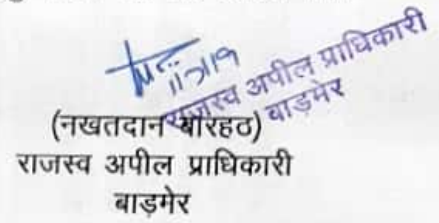 11/7/19
राजस्व अपील प्राधिकारी
बाड़मेर
(नखतदान बारहठ)
राजस्व अपील प्राधिकारी
बाड़मेर